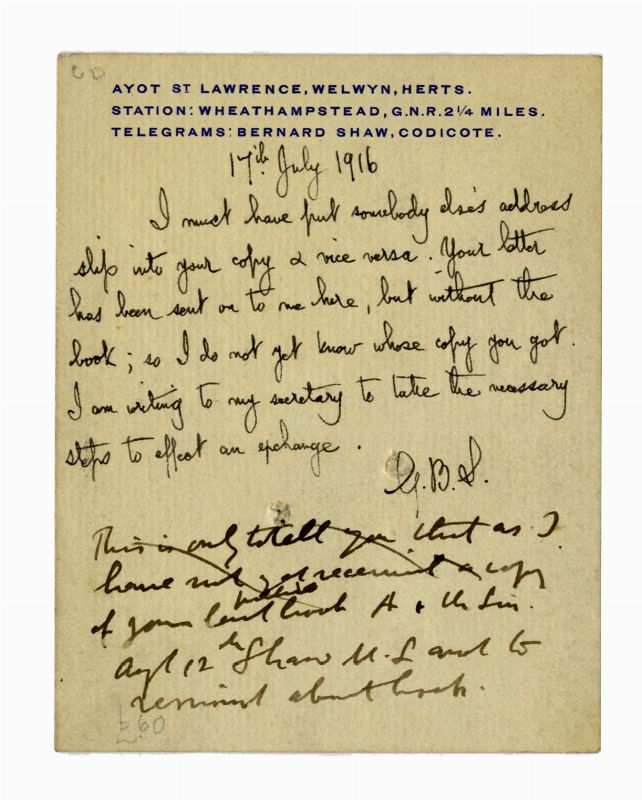 AYOT ST LAWRENCE, WELWYN, HERTS.
STATION: WHEATHAMPSTEAD, G.N.R. 2¼ MILES.
TELEGRAMS: BERNARD SHAW, CODICOTE.
17th July 1916
I must have put somebody else's address
slip into your copy & vice versa. Your letter
has been sent on to me here, but without the
book; so I do not yet know whose copy you got.
I am writing to my secretary to take the necessary
steps to effect an exchange.
G.B.S.
This is only to tell you that as I
have not yet received a copy
of your last book A & the Lion.
12th Shaw and to
remind about book.
£60